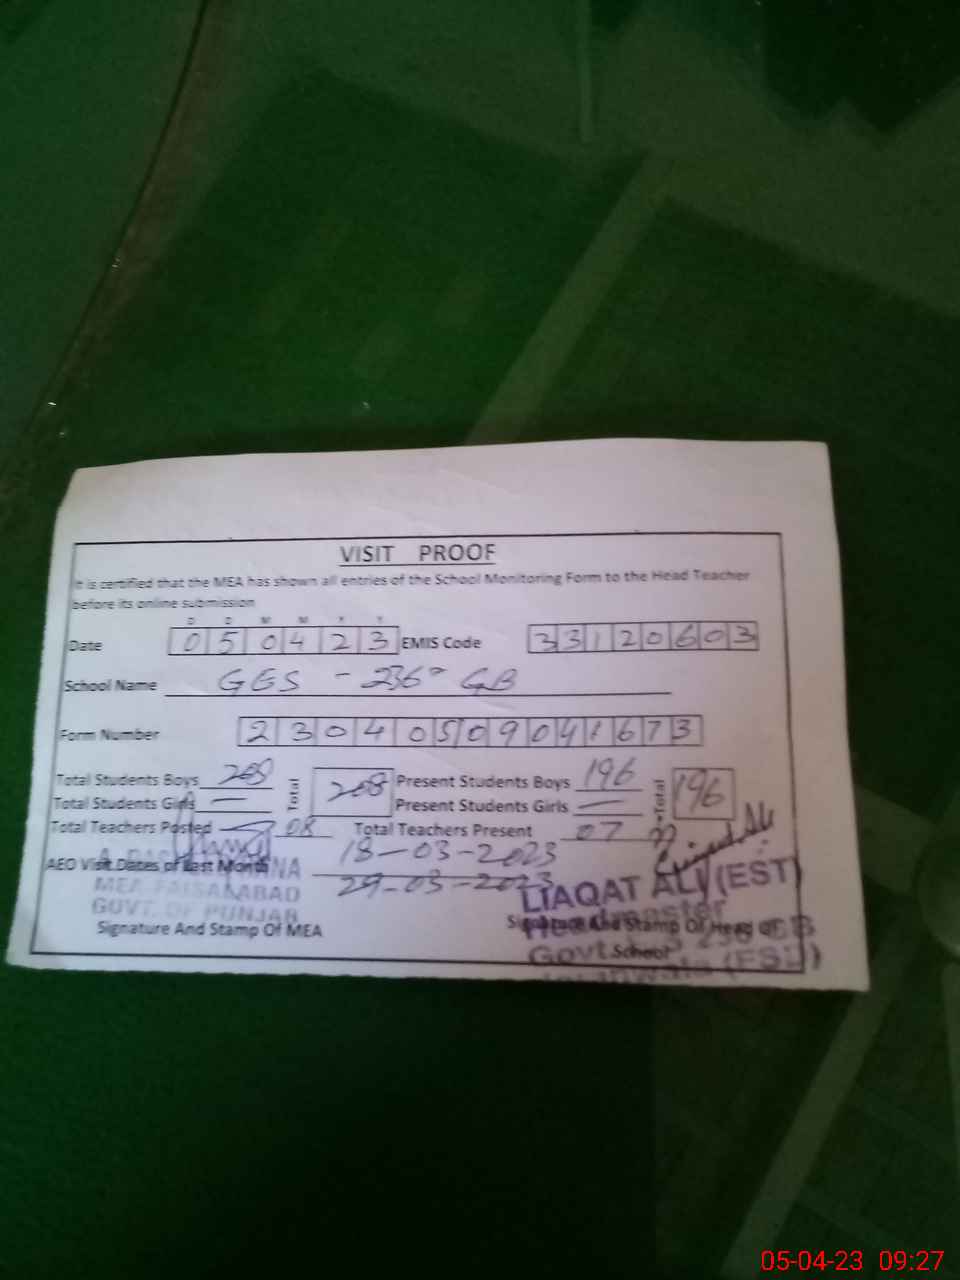 VISIT PROOF
It is certified that the MEA has shown all entries of the School Monitoring Form to the Head Teacher
before its online submission
D D M M Y Y
Date 0 5 0 4 2 3 EMIS Code 3 3 1 2 0 6 0 3
School Name GES - 236 GB
Form Number 2 3 0 4 0 5 0 9 0 4 1 6 7 3
Total Students Boys 208 Total 208 Present Students Boys 196 Total 196
Total Students Girls — Present Students Girls —
Total Teachers Posted 08 Total Teachers Present 07
AEO Visit Dates of Last Month 18-03-2023
29-03-2023
MEA FAISALABAD
GOVT. OF PUNJAB
Signature And Stamp Of MEA
LIAQAT ALI (EST)
Headmaster
Signature And Stamp Of Head Of
School
Govt. 236 GB
(FSD)
05-04-23 09:27